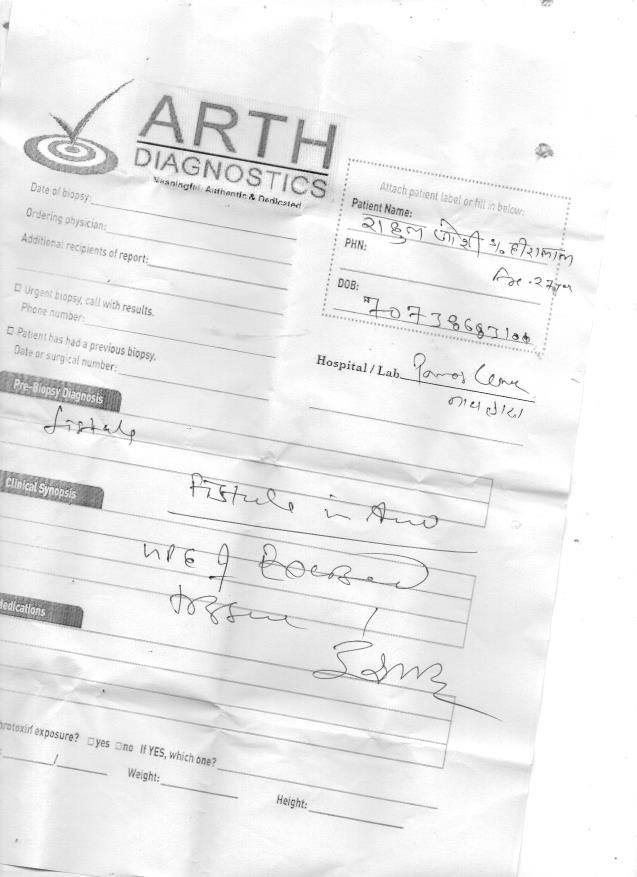 ARTH
DIAGNOSTICS
Meaningful, Authentic & Dedicated
Attach patient label or fill in below:
Patient Name:
राहुल जोशी S/o हीरालाल
PHN:
Age. 27yr
DOB:
Date of biopsy:
Ordering physician:
Additional recipients of report:
Urgent biopsy, call with results.
Phone number:
Patient has had a previous biopsy.
Date or surgical number:
Hospital / Lab
नाथद्वारा
Pre-Biopsy Diagnosis
fistula
Clinical Synopsis
Fistula in Ano
HPE of
Medications
protoxin exposure? yes no If YES, which one?
Weight:
Height: